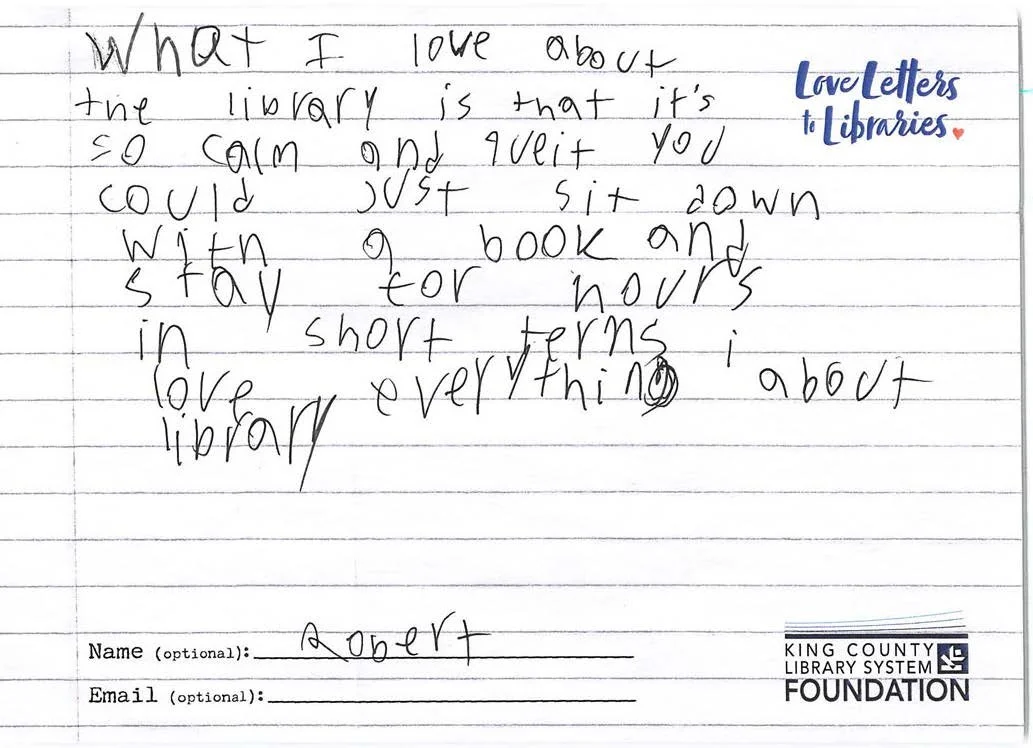 What I love about
the library is that it's
so calm and queit you
could just sit down
with a book and
stay for hours
in short terms i
love everything about
library
Love Letters
to Libraries
Name (optional): Robert
Email (optional):
KING COUNTY
LIBRARY SYSTEM
FOUNDATION